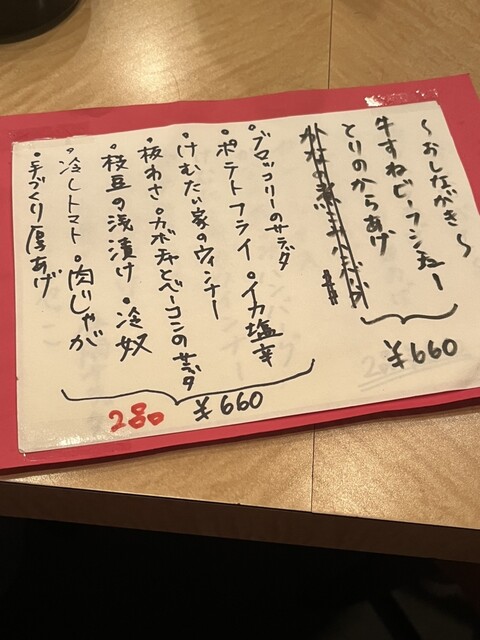 〜おしながき〜
牛すねビーフシチュー
とりのからあげ
¥660
・ブロッコリーのサラダ
・ポテトフライ ・イカ塩辛
・けむたい家のウィンナー
・板わさ ・カボチャとベーコンのサラダ
・枝豆の浅漬け ・冷奴
・冷しトマト ・肉じゃが
・手づくり厚あげ
¥660
280